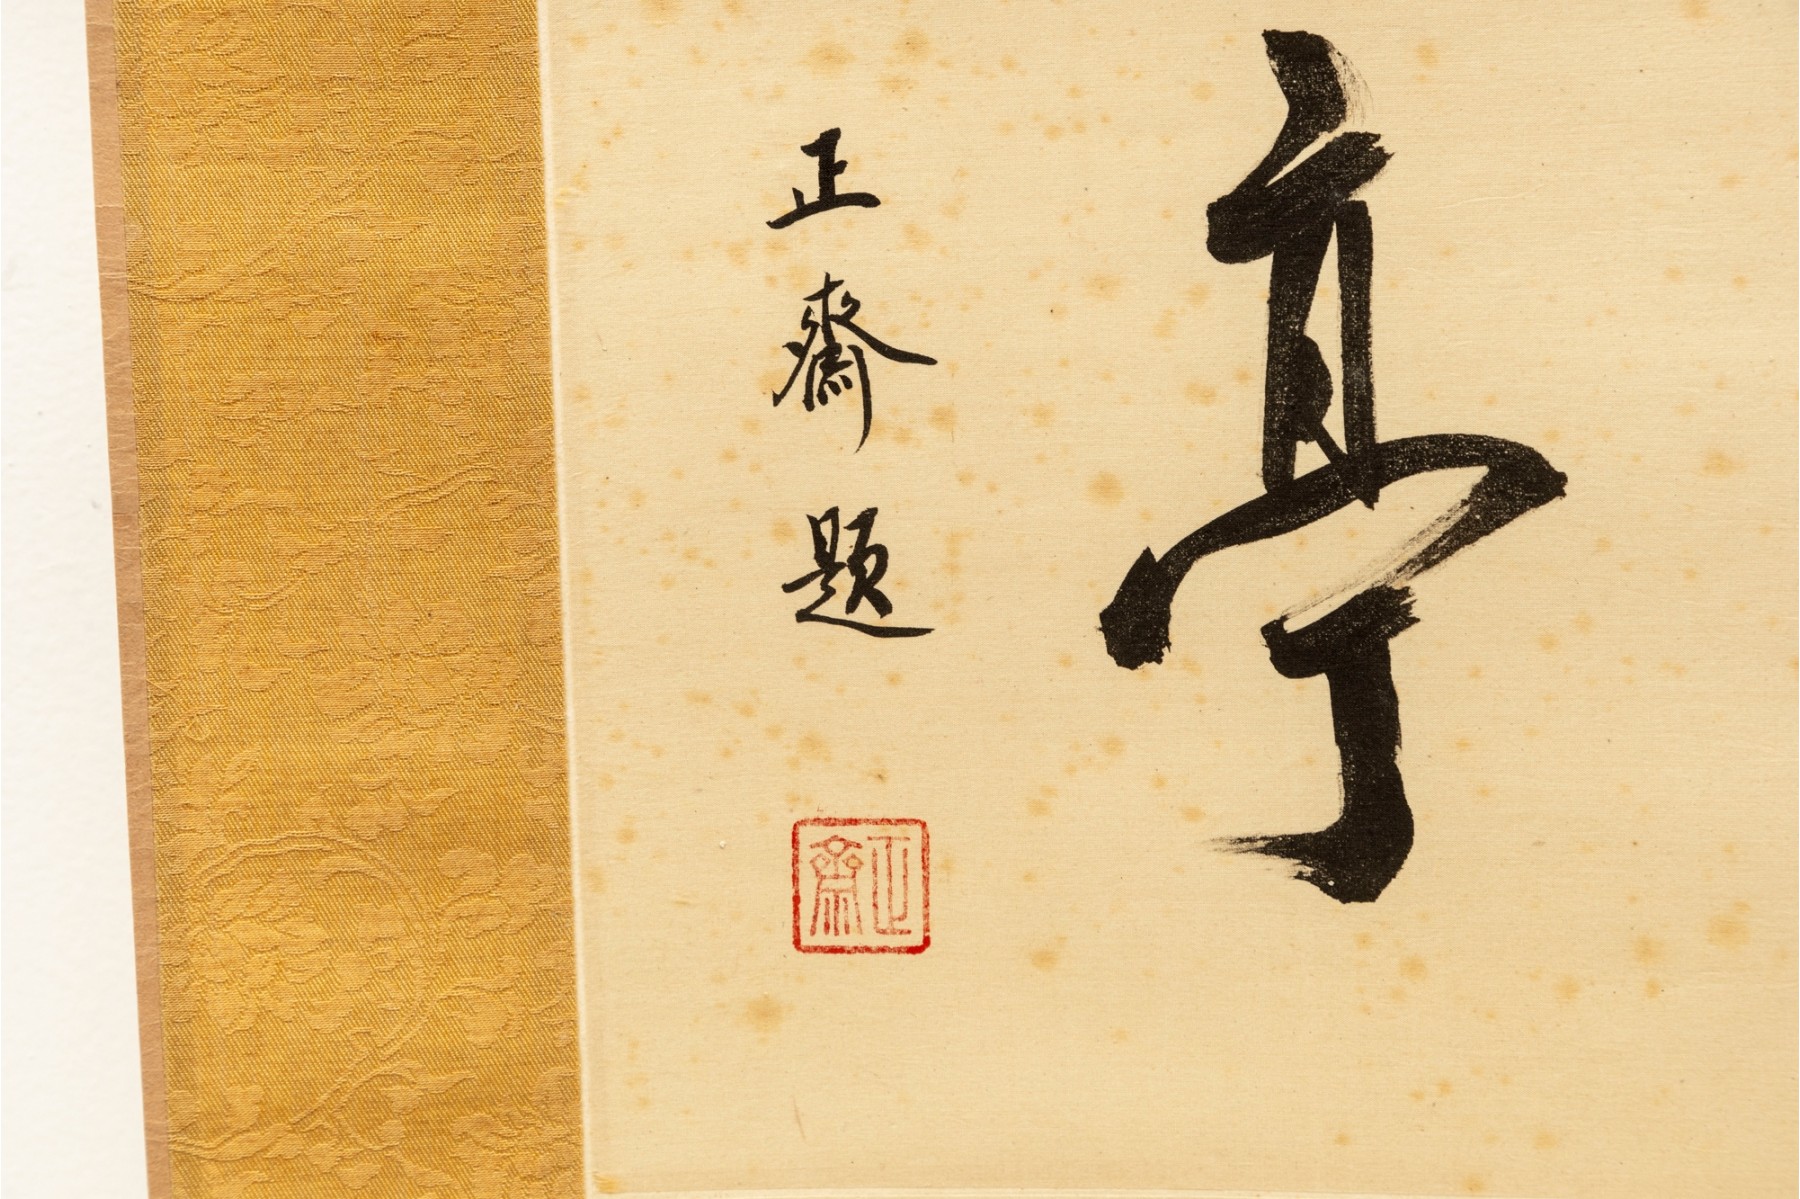 亭
正齋題
正齋